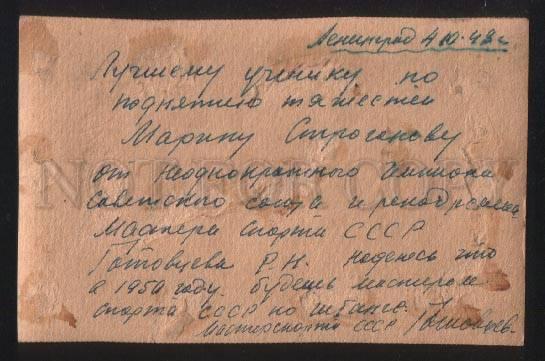 Ленинград 4 10.48 г
Лучшему ученику по
поднятию тяжестей
Марину Строганову
от неоднократного чемпиона
Советского союза и рекордсмена
Мастера спорта СССР
Готовцева Р.Н. надеюсь что
в 1950 году будешь мастером
спорта СССР по штанге.
Мастер спорта СССР
NOT FOR COPY